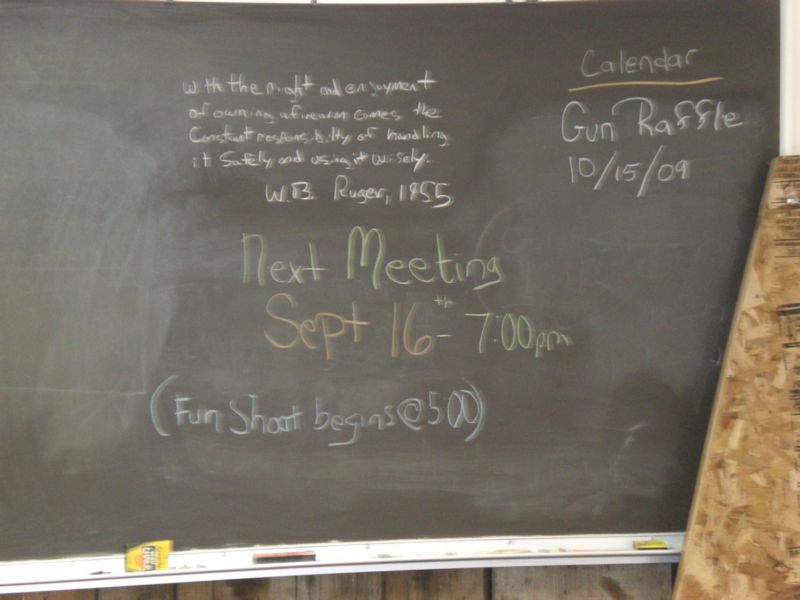 with the right and enjoyment
of owning a firearm comes the
Constant responsibility of handling
it Safely and using it wisely.
W.B. Ruger, 1955
Calendar
Gun Raffle
10/15/09
Next Meeting
Sept 16th - 7:00pm
(Fun Shoot begins @ 5:00)